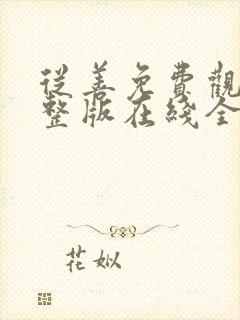 從善免費觀
整版在线全
花姒